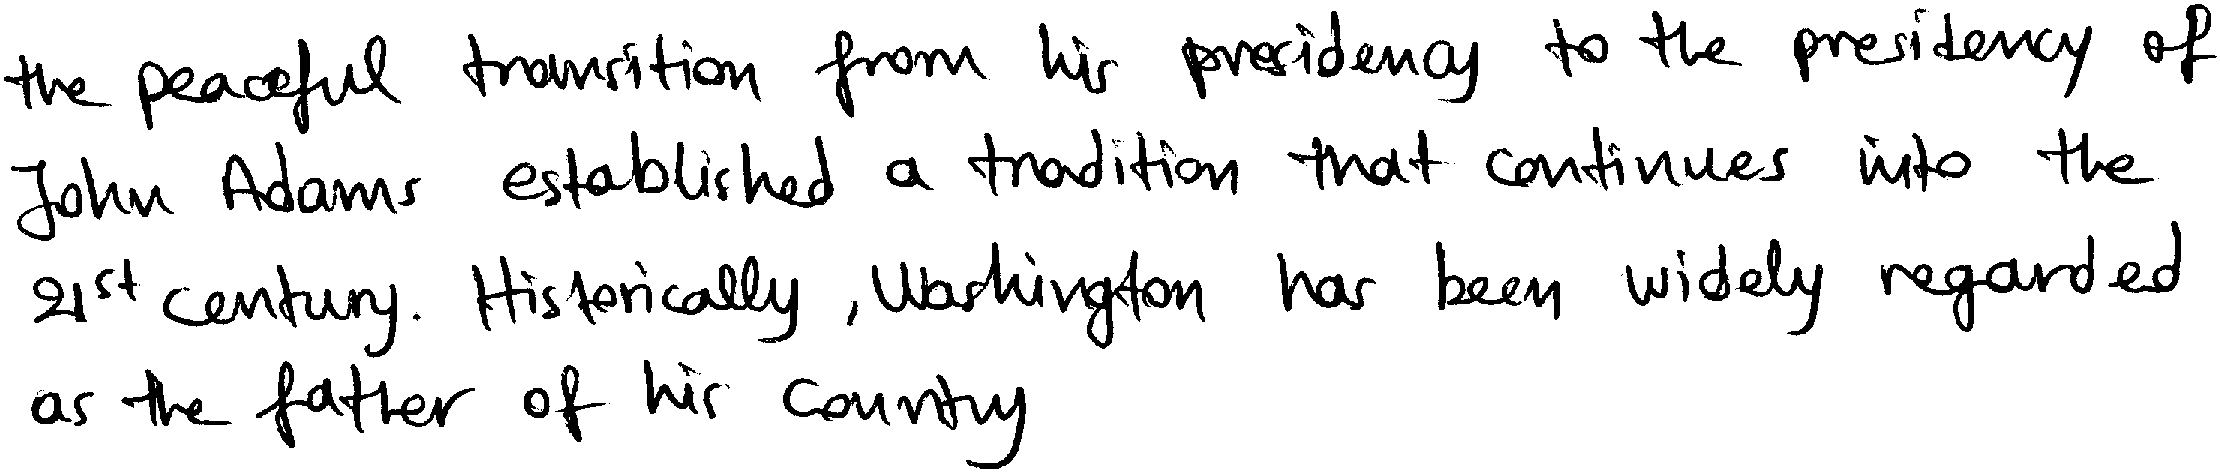 the peaceful transition from his presidency to the presidency of
John Adams established a tradition that continues into the
21st century. Historically, Washington has been widely regarded
as the father of his country